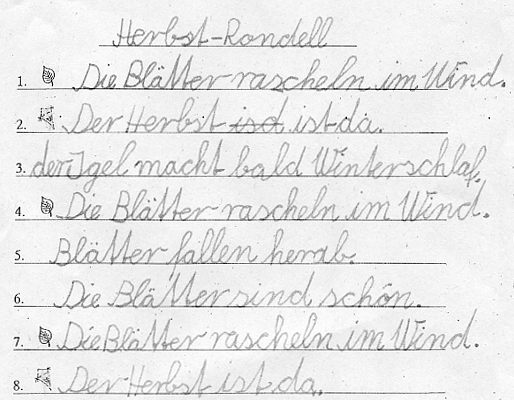 Herbst-Rondell
1. Die Blätter rascheln im Wind.
2. Der Herbst isd ist da.
3. der Igel macht bald Winterschlaf.
4. Die Blätter rascheln im Wind.
5. Blätter fallen herab.
6. Die Blätter sind schön.
7. Die Blätter rascheln im Wind.
8. Der Herbst ist da.